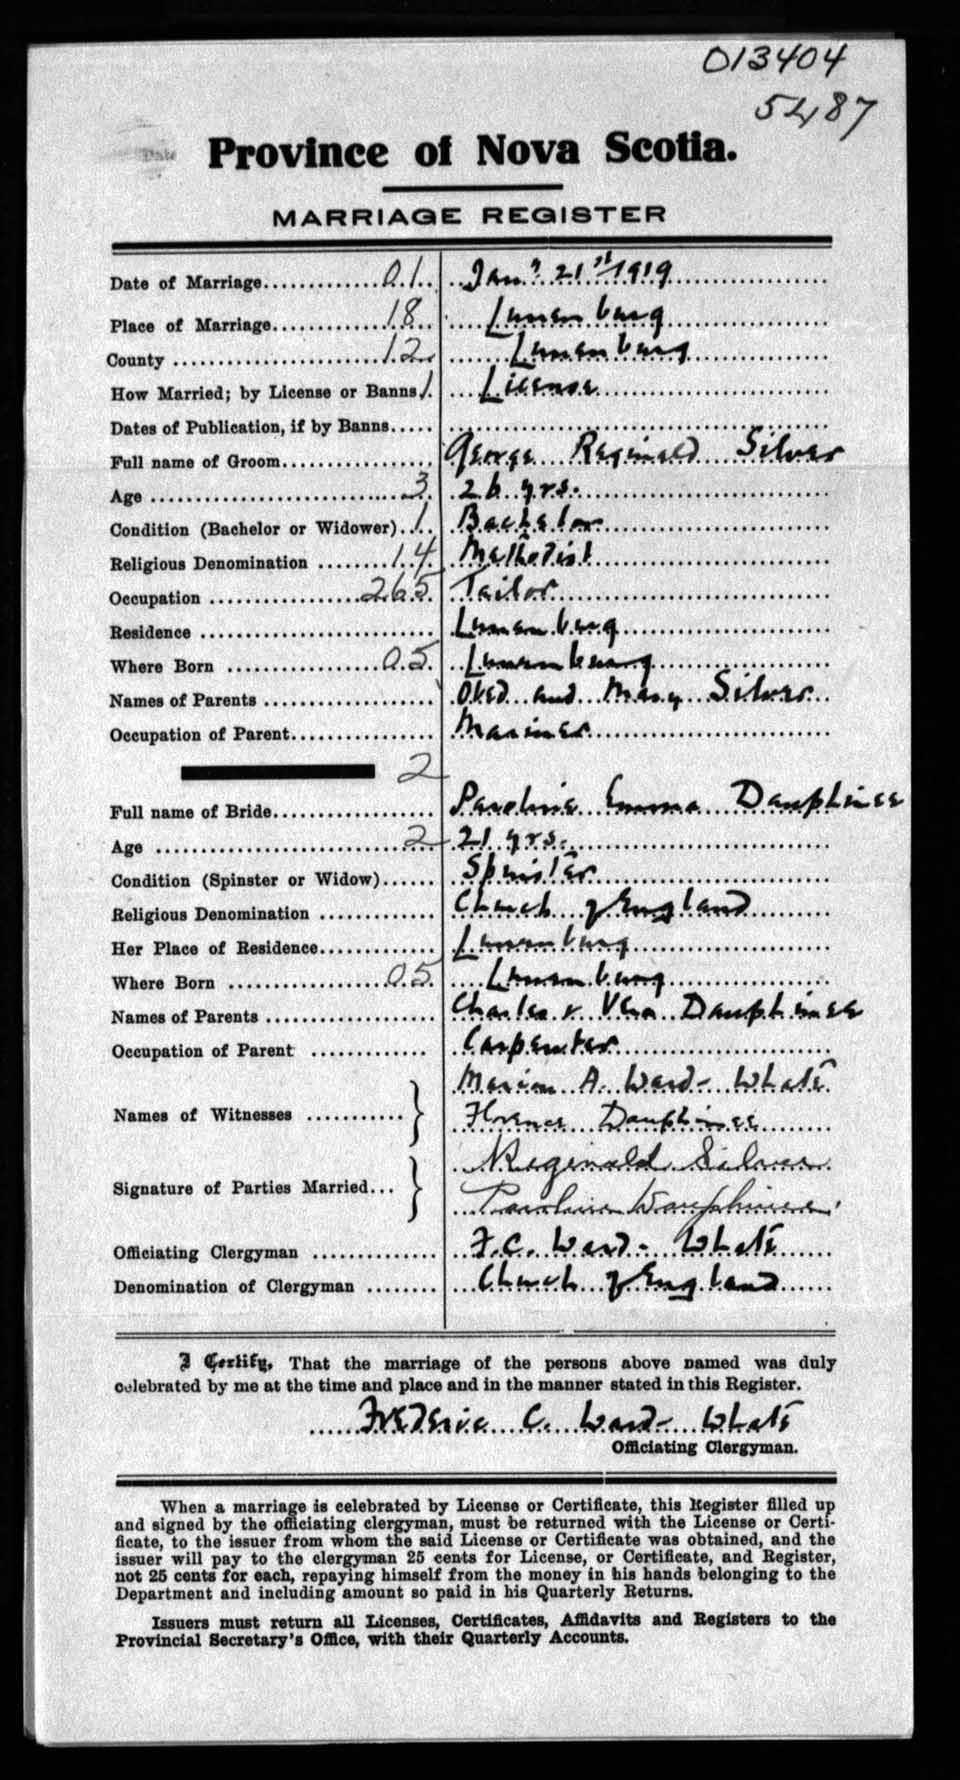 013404
5487
Province of Nova Scotia.
MARRIAGE REGISTER
Date of Marriage 01 Jany 21st 1919
Place of Marriage 18 Lunenburg
County 12 Lunenburg
How Married; by License or Banns 1 License
Dates of Publication, if by Banns
Full name of Groom George Reginald Silver
Age 3 26 yrs.
Condition (Bachelor or Widower) 1 Bachelor
Religious Denomination 14 Methodist
Occupation 265 Tailor
Residence Lunenburg
Where Born 05 Lunenburg
Names of Parents Obed and Mary Silver
Occupation of Parent Mariner
2
Full name of Bride Pauline Emma Dauphinee
Age 2 21 yrs.
Condition (Spinster or Widow) Spinster
Religious Denomination Church of England
Her Place of Residence Lunenburg
Where Born 05 Lunenburg
Names of Parents Charles & Dauphinee
Occupation of Parent Carpenter
Marion A. Ward-Whate
Names of Witnesses
Florence Dauphinee
Reginald Silver
Signature of Parties Married
Pauline Dauphinee
Officiating Clergyman F.C. Ward-Whate
Denomination of Clergyman Church of England
I Certify, That the marriage of the persons above named was duly
celebrated by me at the time and place and in the manner stated in this Register.
Frederic C. Ward-Whate
Officiating Clergyman.
When a marriage is celebrated by License or Certificate, this Register filled up
and signed by the officiating clergyman, must be returned with the License or Certi-
ficate, to the issuer from whom the said License or Certificate was obtained, and the
issuer will pay to the clergyman 25 cents for License, or Certificate, and Register,
not 25 cents for each, repaying himself from the money in his hands belonging to the
Department and including amount so paid in his Quarterly Returns.
Issuers must return all Licenses, Certificates, Affidavits and Registers to the
Provincial Secretary's Office, with their Quarterly Accounts.